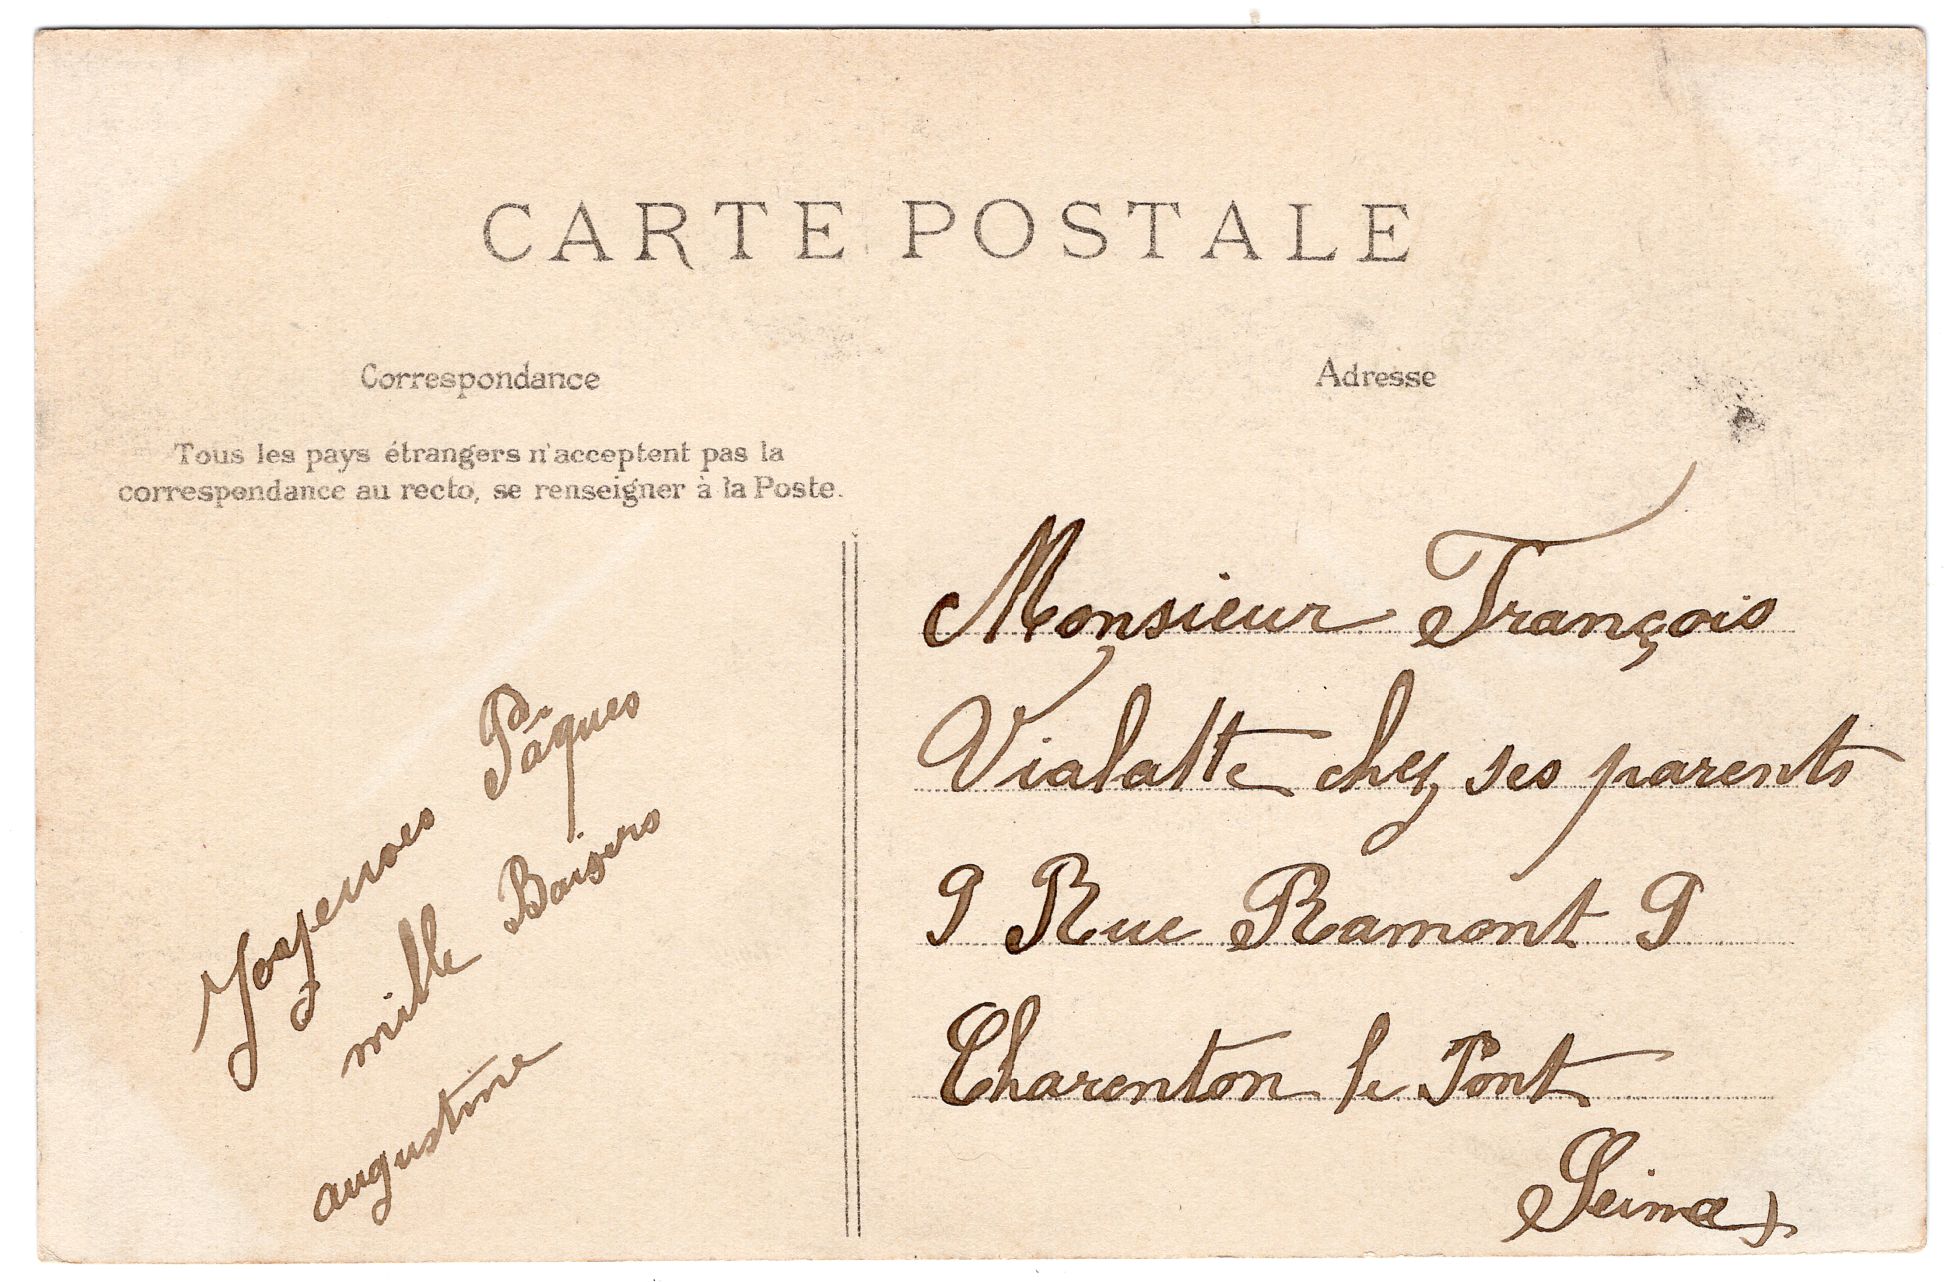 CARTE POSTALE
Correspondance
Tous les pays étrangers n'acceptent pas la
correspondance au recto, se renseigner à la Poste.
Joyeuses Pâques
mille Baisers
augustine
Adresse
Monsieur François
Vialatte chez ses parents
9 Rue Ramont 9
Charenton le Pont
Seine